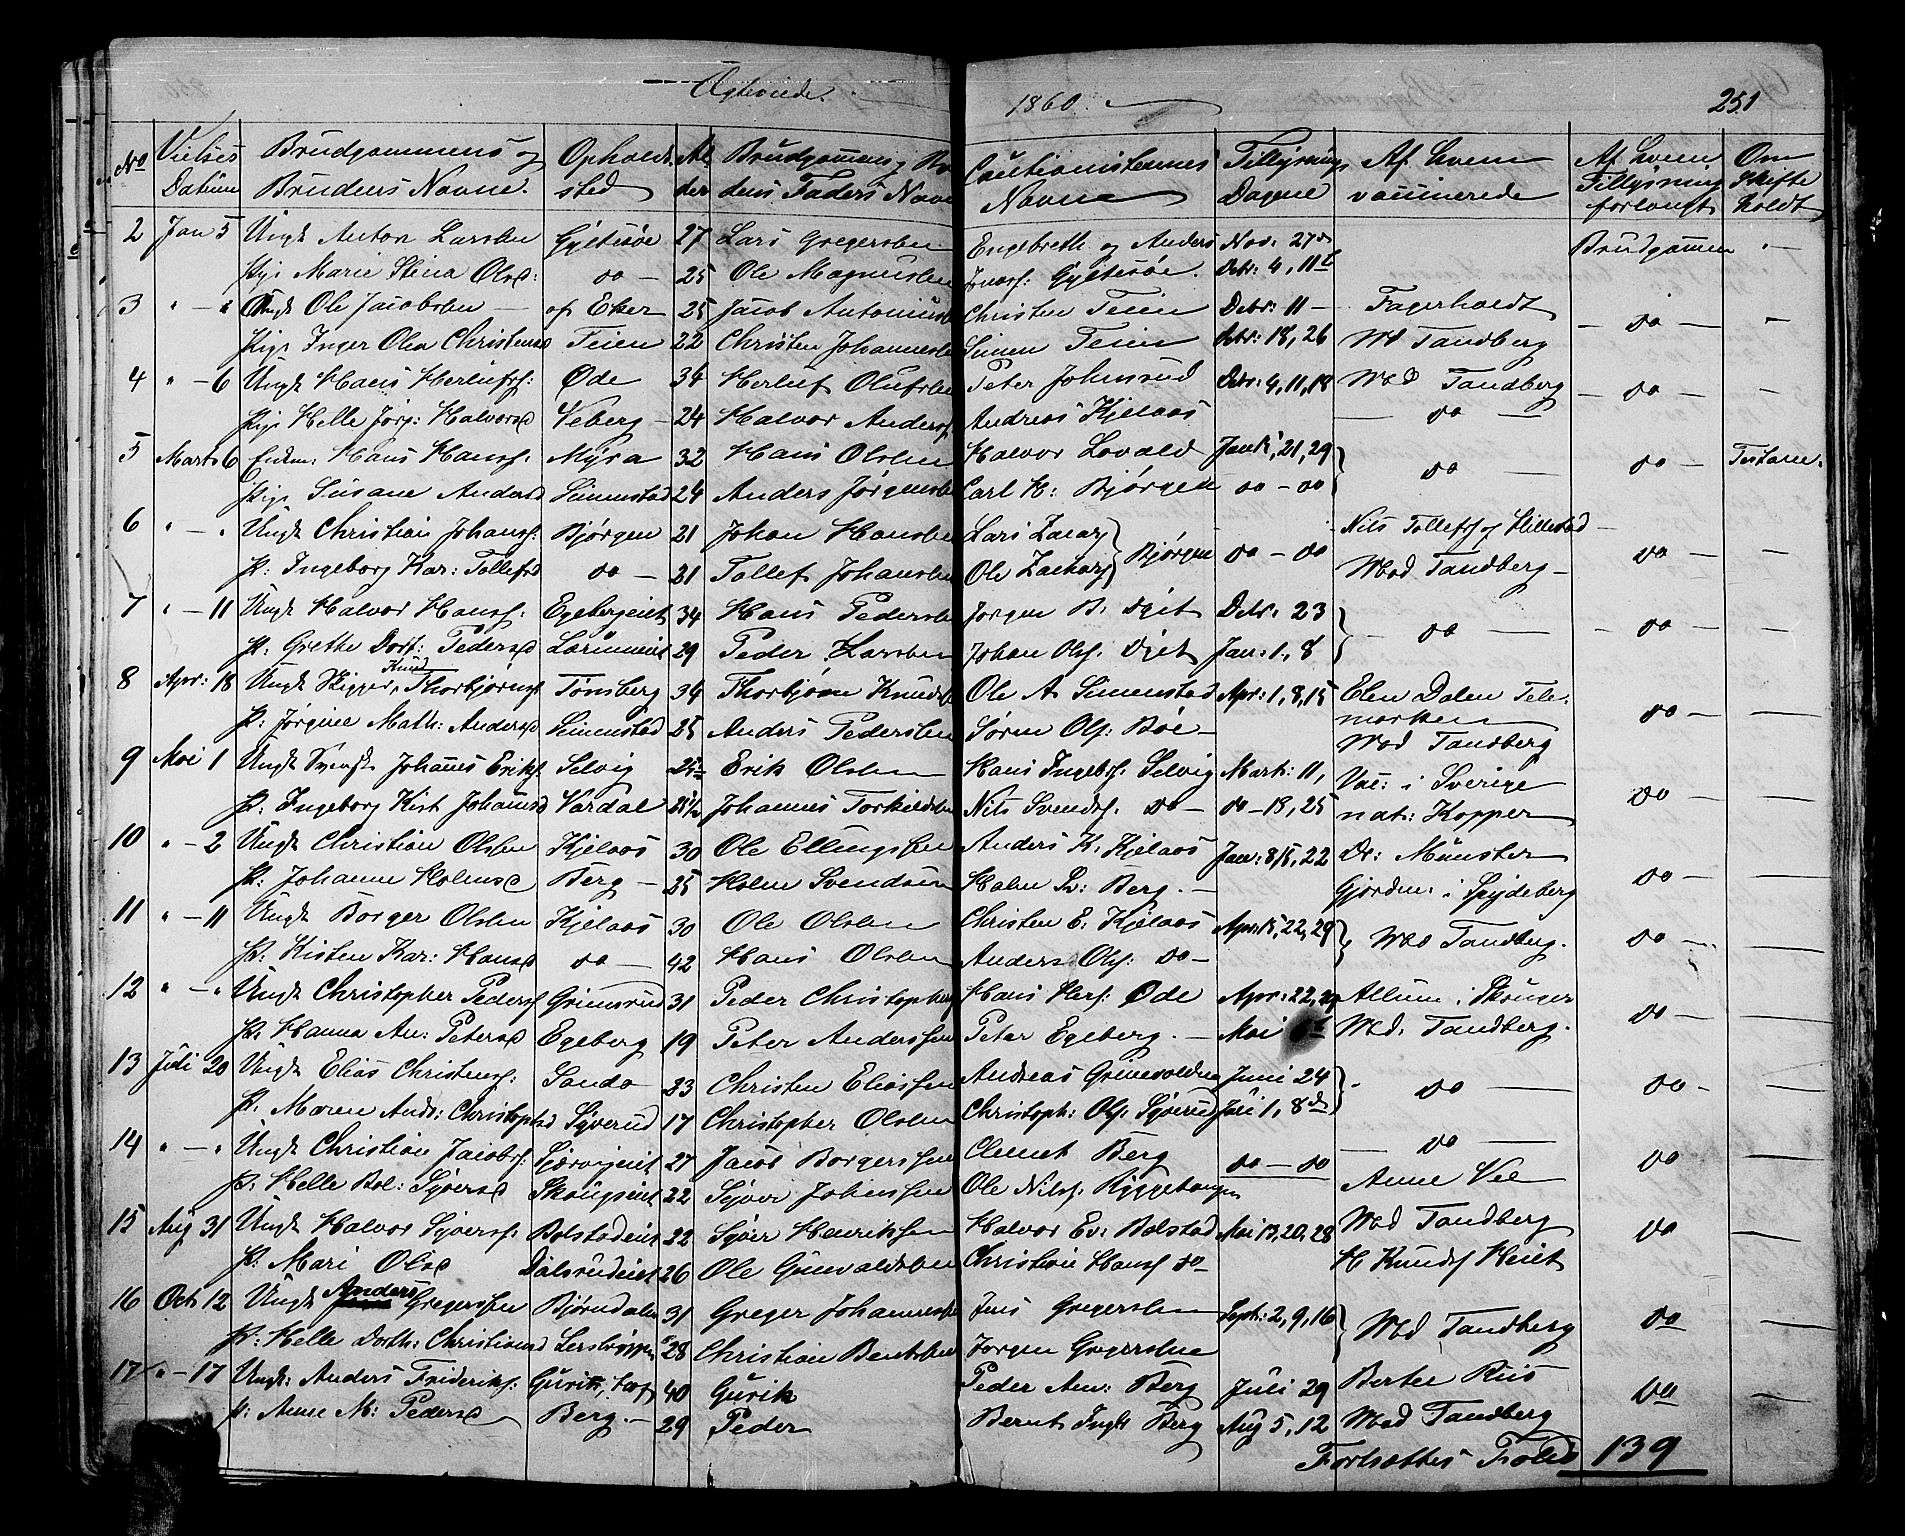 Ægteviede. 1860. 251
No Vielses Datum Brudgommens og Brudens Navne. Opholds sted Al der Brudgommens og Bru dens Faders Navn Cautionisternes Navne Tillysnings Dagene Af hvem vaccinerede Af hvem Tillysning forlangt Om Skifte holdt
2 Jan 5 Ungk Anton Larsen Gyltesøe 27 Lars Gregersen Engebreth og Anders Nov: 27de Brudgommen —
Pige Marie Stina Olsd: do — 25 Ole Magnussen Gyltesøe. Debr: 4, 11te
3 " — " Ungk Ole Jacobsen — af Eker 25 Jacob Antonius Christen Teien Debr: 11 — Fagerholdt — do — —
Pige Inger Olea Christensd Teien 22 Christen Johannessen Simen Teien Debr: 18, 26 Md Tandberg
4 " — 6 Ungk Hans Herlufs: Øde 34 Herluf Olufsen Peter Johnsrud Debr: 4, 11, 18 Mad Tandberg — do — —
Pige Helle Jørg: Halvorsd Veberg — 24 Halvor Anders: Andreas Kjelaas — do —
5 Marts 6 Enkm: Hans Hans: Myra 32 Hans Olsen Halvor Lovald Jan 15, 21, 29 do — do — Testam.
Pige Susane Andersd Simenstad 24 Anders Jørgensen Carl H: Bjørgen do — do
6 " — " Ungk Christian Johans: Bjørgen 21 Johan Hansen Lars Zacary Bjørgen do — do Nils Tollefs: Hillestad — do — —
P: Ingeborg Kar: Tollefsd do — 21 Tollef Johansen Ole Zachary Mad Tandberg —
7 " — 11 Ungk Halvor Hans: Egebergeiet 34 Hans Pedersen Jørgen B. Debr: 23 — do — — do — —
P: Grethe Dort: Pedersd 29 Peder Larsen Johan Ols: Jan: 1, 8
8 Apr: 18 Ungk Skipper, Knud Thorbjørns: Tønsberg 34 Thorbjørn Knuds: Ole A Simenstad Apr: 1, 8, 15 Elen Dalen Tele- do — —
P: Jørgine Math: Andersd Simenstad 25 Anders Pedersen Søren Ols: Bøe — marken
Mad Tandberg
9 Mai 1 Ungk Svensk Johannes Eriks: Selvig 25 Erik Olsen Hans Ingebs: Selvig Mart: 11, Vac: i Sverige do — —
P: Ingeborg Kirst Johannesd Vardal Johannes Torkildsen Nils Svends: do — do — 18, 25 nat: Kopper
10 " — 2 Ungk Christian Olsen Kjelaas 30 Ole Ellingsen Anders K. Kjelaas Jan: 8, 15, 22 Dr: Münster do — —
P: Johanne Holmsd Berg — 25 Holm Svendsen Holm Sv: Berg. — Gjordem: i Spydeberg
11 " — 11 Ungk Borger Olsen Kjelaas 30 Ole Olsen Christen E. Kjelaas Apr: 15, 22, 29 Mad Tandberg. do — —
P: Kisten Kar: Hansd do — 42 Hans Olsen Anders Ols: do —
12 " — " Ungk Christopher Peders: Grimsrud 31 Peder Christophers Hans Hers: Øde Apr: 22, 29 Allum i Skouger do — —
P: Hanna An: Petersd Egeberg 19 Peter Anderssen Peter Egeberg. — Mai Mad: Tandberg.
13 Juli 20 Ungk Elias Christens: Sando 23 Christen Eliassen Andreas Grinevolden Juni 24 — do — do — —
P. Maren And: Christophd Syverud 17 Christopher Olsen Christoph: Ols: Syverud Juli 1, 8de
14 " — " Ungk Christian Jacobs: 27 Jacob Borgerssen Clemet Berg do — do — do — do —
P: Helle Bol: Syversd Skougseiet 22 Syver Johanssen Ole Nils: Ryggehougen Anne Vee
15 Aug 31 Ungk Halvor Syvers: Bolstadeiet 22 Syver Henriksen Halvor Ev: Bolstad Mai 13, 20, 28 Mad Tandberg do —
P: Mari Olsd Dalsrudeiet 26 Ole Gunvaldsen Christian Hans: do H Knuds: Heiet
16 Oct: 12 Ungk Anders Gregerssen Bjørndalen 31 Greger Johannessen Jens Gregersen Sept: 2, 9, 16 Mad Tandberg do —
P: Helle Dorth: Christiansd 28 Christian Bentsen Jørgen Gregersen
17 " — 17 Ungk: Anders Frideriks: Gurik, 40 Gurik Peder An: Berg Juli 29 Berthe Riis do —
P: Anne M: Pedersd Berg. — 29 Peder Bernt Ing: Berg Aug 5, 12 Mad Tandberg
Fortsættes Folio 139